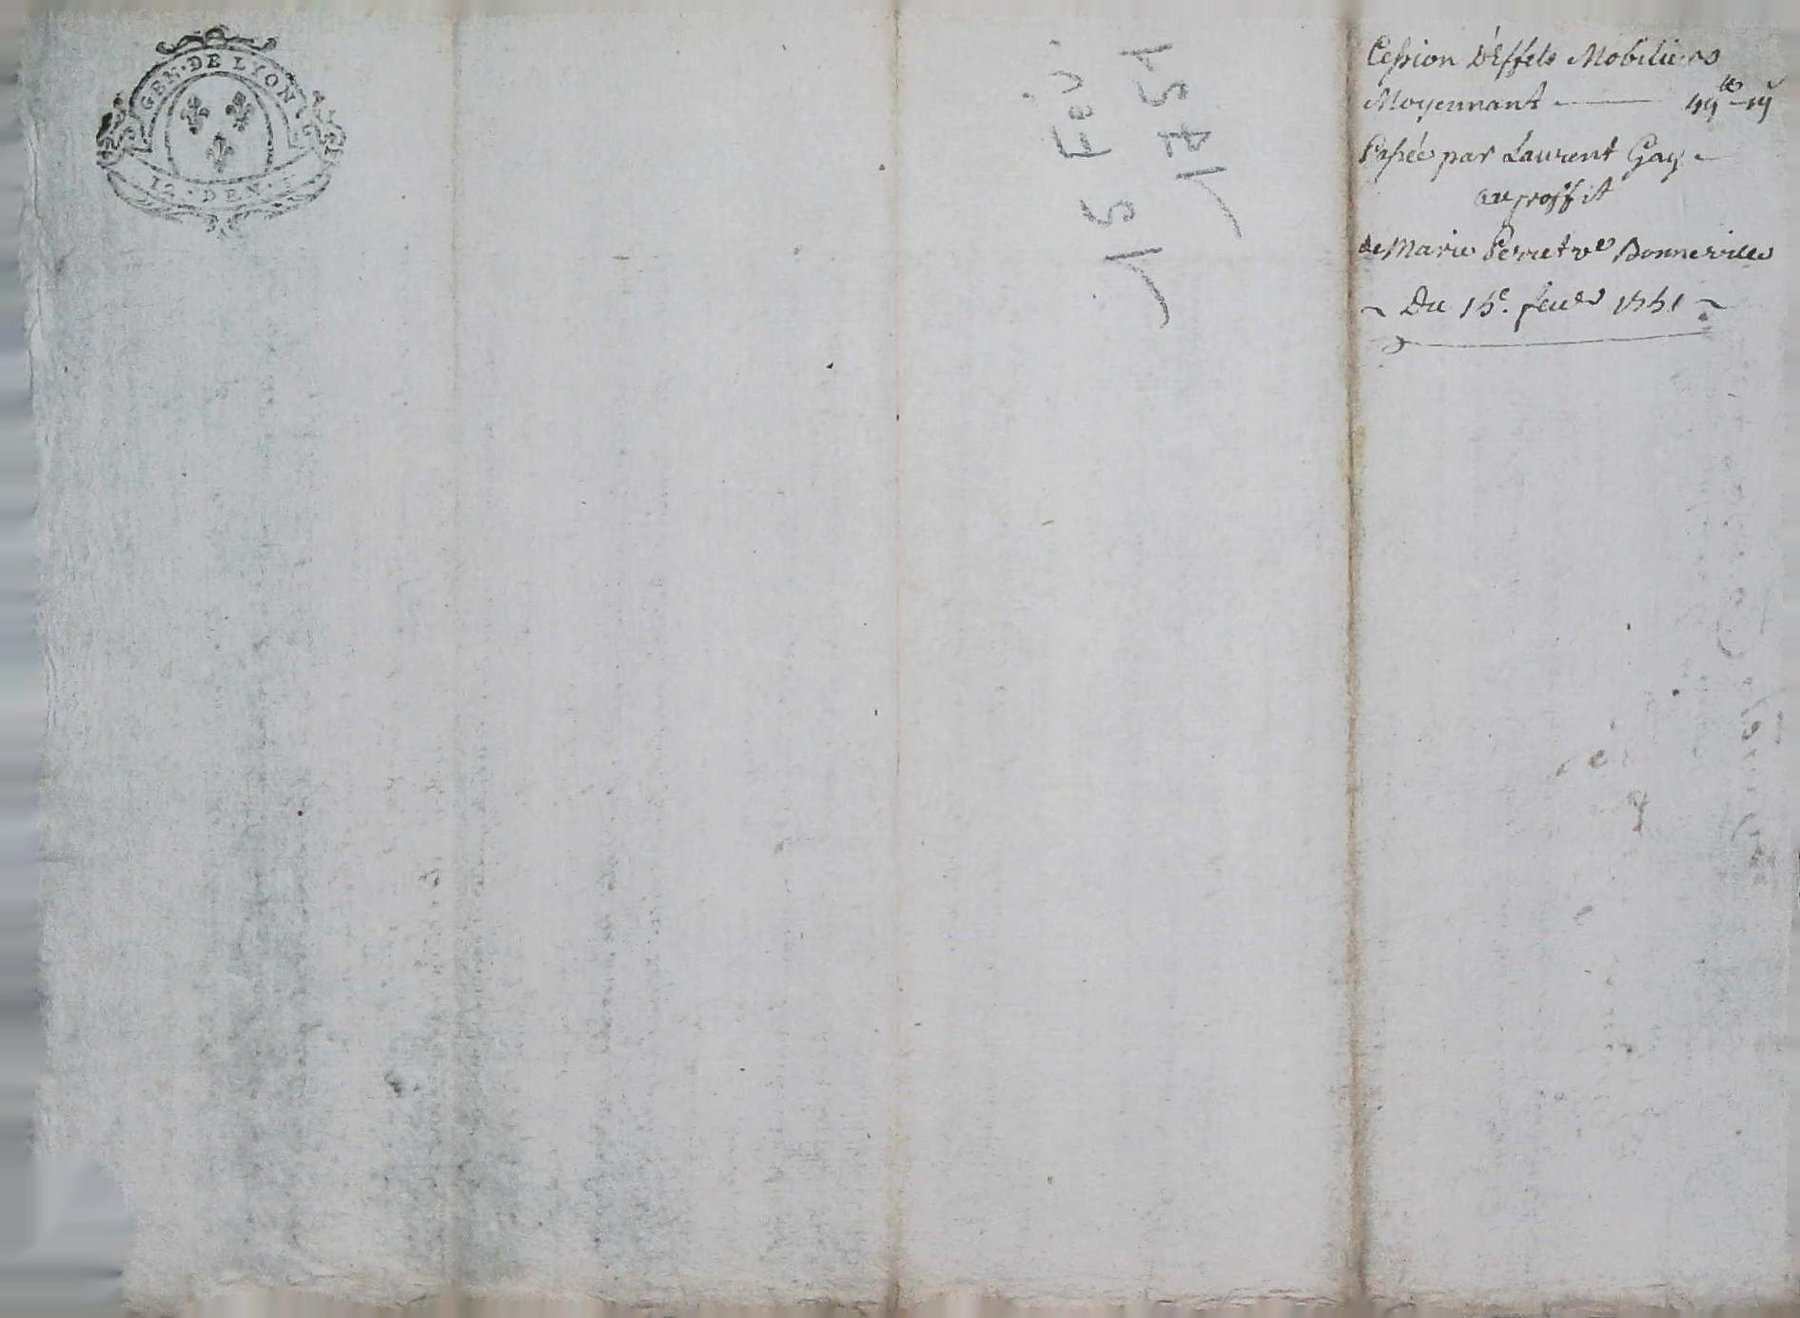 GEN · DE LYON
12 · DEN ·
15 Fév.
1751
Cession D'Effets Mobiliers
Moyennant
Passée par Laurent Gay
au proffit
de Marie Perret vᵉ Bonneville
~ Du 15ᵉ. feuᵉʳ 1751 ~